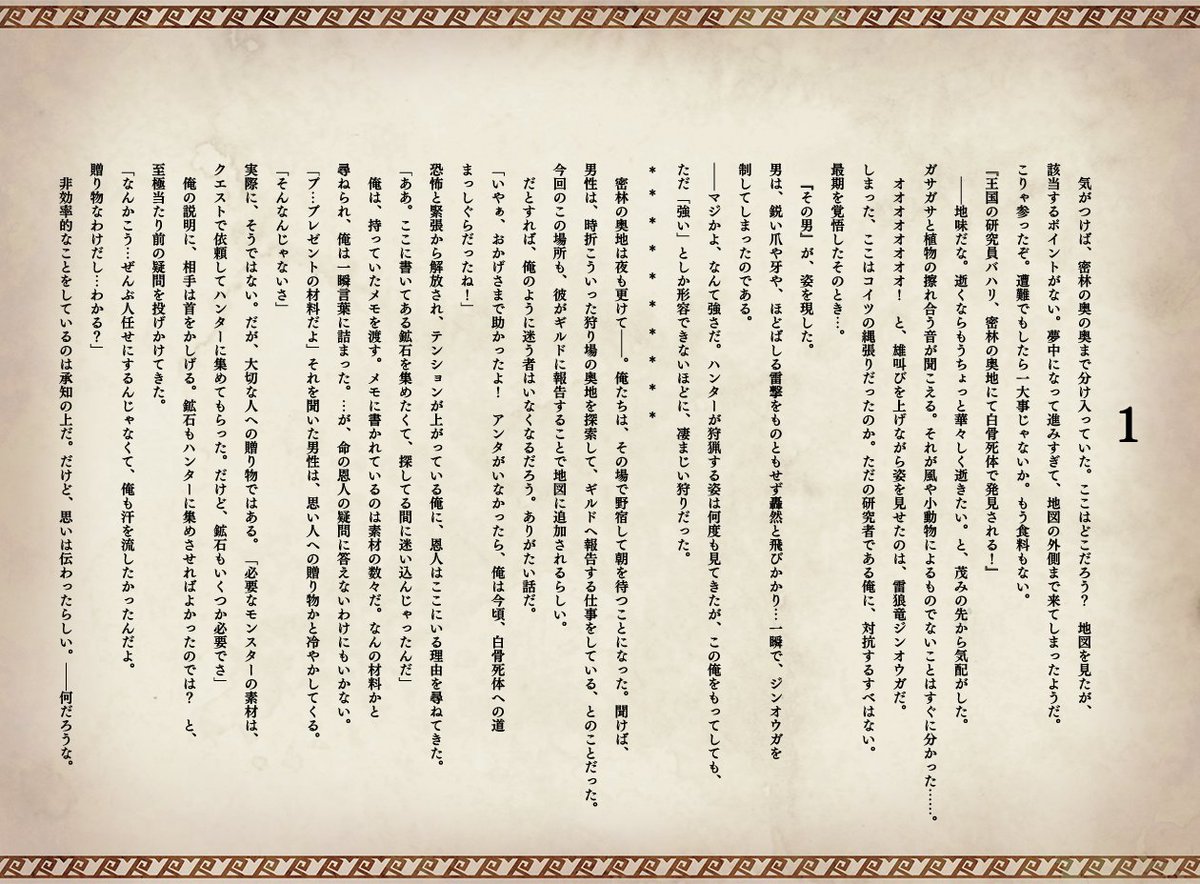 1
気がつけば、密林の奥の奥まで分け入っていた。ここはどこだろう？　地図を見たが、
該当するポイントがない。夢中になって進みすぎて、地図の外側まで来てしまったようだ。
こりゃ参ったぞ。遭難でもしたら一大事じゃないか。もう食料もない。
『王国の研究員バハリ、密林の奥地にて白骨死体で発見される！』
――地味だな。逝くならもうちょっと華々しく逝きたい。と、茂みの先から気配がした。
ガサガサと植物の擦れ合う音が聞こえる。それが風や小動物によるものでないことはすぐに分かった……。
オオオオオオオオ！　と、雄叫びを上げながら姿を見せたのは、雷狼竜ジンオウガだ。
しまった、ここはコイツの縄張りだったのか。ただの研究者である俺に、対抗するすべはない。
最期を覚悟したそのとき…。
『その男』が、姿を現した。
男は、鋭い爪や牙や、ほどばしる雷撃をものともせず轟然と飛びかかり…一瞬で、ジンオウガを
制してしまったのである。
――マジかよ、なんて強さだ。ハンターが狩猟する姿は何度も見てきたが、この俺をもってしても、
ただ「強い」としか形容できないほどに、凄まじい狩りだった。
＊　＊　＊　＊　＊　＊　＊　＊
密林の奥地は夜も更けて――。俺たちは、その場で野宿して朝を待つことになった。聞けば、
男性は、時折こういった狩り場の奥地を探索して、ギルドへ報告する仕事をしている、とのことだった。
今回のこの場所も、彼がギルドに報告することで地図に追加されるらしい。
だとすれば、俺のように迷う者はいなくなるだろう。ありがたい話だ。
「いやぁ、おかげさまで助かったよ！　アンタがいなかったら、俺は今頃、白骨死体への道
まっしぐらだったね！」
恐怖と緊張から解放され、テンションが上がっている俺に、恩人はここにいる理由を尋ねてきた。
「ああ。ここに書いてある鉱石を集めたくて、探してる間に迷い込んじゃったんだ」
俺は、持っていたメモを渡す。メモに書かれているのは素材の数々だ。なんの材料かと
尋ねられ、俺は一瞬言葉に詰まった。…が、命の恩人の疑問に答えないわけにもいかない。
「プ…プレゼントの材料だよ」それを聞いた男性は、思い人への贈り物かと冷やかしてくる。
「そんなんじゃないさ」
実際に、そうではない。だが、大切な人への贈り物ではある。「必要なモンスターの素材は、
クエストで依頼してハンターに集めてもらった。だけど、鉱石もいくつか必要でさ」
俺の説明に、相手は首をかしげる。鉱石もハンターに集めさせればよかったのでは？　と、
至極当たり前の疑問を投げかけてきた。
「なんかこう…ぜんぶ人任せにするんじゃなくて、俺も汗を流したかったんだよ。
贈り物なわけだし…わかる？」
非効率的なことをしているのは承知の上だ。だけど、思いは伝わったらしい。――何だろうな。